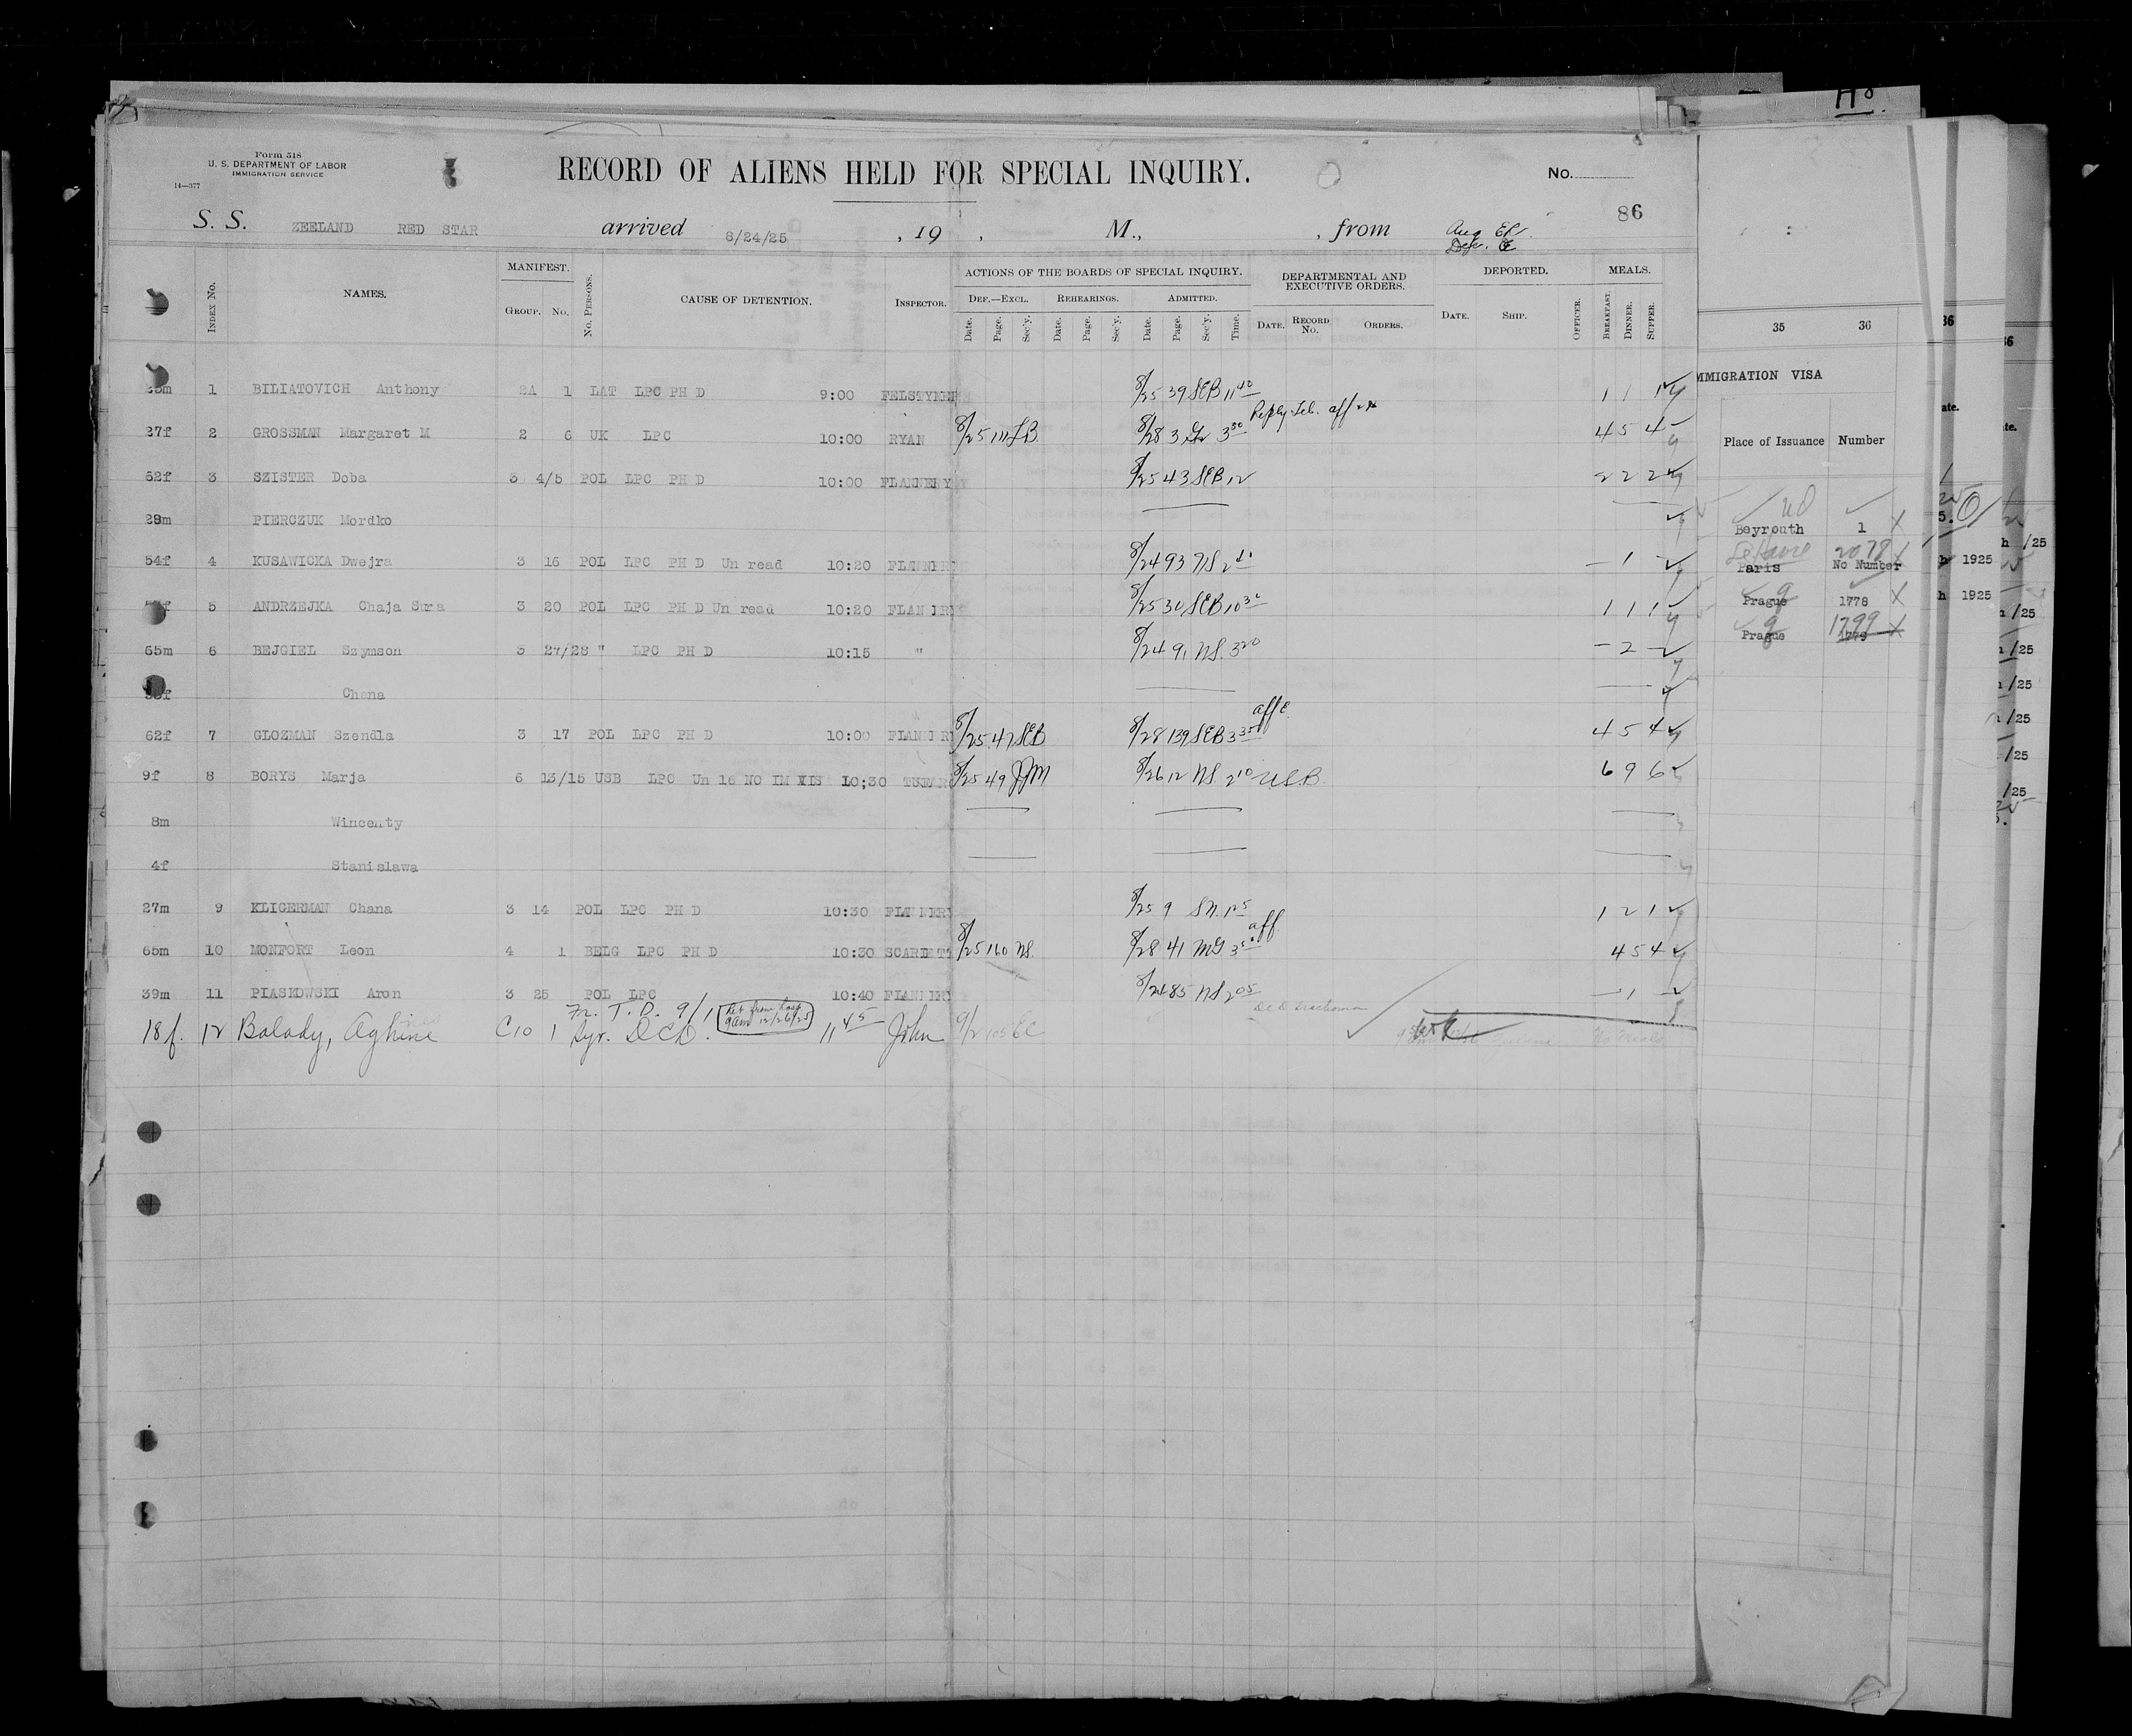 Form 318
U. S. DEPARTMENT OF LABOR
IMMIGRATION SERVICE
14—377
RECORD OF ALIENS HELD FOR SPECIAL INQUIRY.
No.
86
S. S. ZEELAND RED STAR arrived 8/24/25 , 19 , M., , from
INDEX No. NAMES. MANIFEST. GROUP. No. No. PERSONS. CAUSE OF DETENTION. INSPECTOR.
ACTIONS OF THE BOARDS OF SPECIAL INQUIRY. DEPARTMENTAL AND EXECUTIVE ORDERS. DEPORTED. MEALS.
DEF.—EXCL. REHEARINGS. ADMITTED.
Date. Page. Sec'y. Date. Page. Sec'y. Date. Page. Sec'y. Time. DATE. RECORD No. ORDERS. DATE. SHIP. OFFICER. BREAKFAST. DINNER. SUPPER.
1 BILIATOVICH Anthony 2A 1 LAT LPC PH D 9:00 8/25 39 SEB 11 40 1 1 1
27f 2 GROSSMAN Margaret M 2 6 UK LPC 10:00 RYAN 8/25 111 LB 8/28 3 3 30 4 5 4
62f 3 SZISTER Doba 3 4/5 POL LPC PH D 10:00 FLANNERY 8/25 43 SEB 12 2 2 2
29m PIERCZUK Mordko
54f 4 KUSAWICKA Dwejra 3 16 POL LPC PH D Un read 10:20 8/24 93 NS — 1 —
5 ANDRZEJKA Chaja Sura 3 20 POL LPC PH D Un read 10:20 8/25 30 SEB 10 30 1 1 1
65m 6 BEJGIEL Szymson 3 27/28 " LPC PH D 10:15 " 8/24 91 NS. 3 20 — 2 —
Chana
62f 7 GLOZMAN Szendla 3 17 POL LPC PH D 10:00 8/25 47 SEB 8/28 139 SEB 3 35 4 5 4
9f 8 BORYS Marja 6 13/15 USB LPC Un 16 NO IM VIS 10;30 8/25 49 JJM 8/26 12 NS 2 10 U.S.B. 6 9 6
8m Wincenty
4f Stanislawa
27m 9 KLIGERMAN Chana 3 14 POL LPC PH D 10:30 FLANNERY 8/25 9 1 25 1 2 1
65m 10 MONFORT Leon 4 1 BELG LPC PH D 10:30 8/25 160 NS. 8/28 41 MG aff 4 5 4
39m 11 PIASKOWSKI Aron 3 25 POL LPC 10:40 8/24 85 NS 2 05 — 1 —
Fr. T. D. 9/1 Ret from hosp 9am 12/26/25
18f. 12 Balady, Aghine C10 1 Syr. DCD. 11 45 John 9/2 105 EC No Meals
35 36
IMMIGRATION VISA
Place of Issuance Number
Beyrouth 1
Paris No Number 2078
Prague 1778
Prague 1779 1799
36
ate.
h 1925
h 1925
/25
/25
/25
/25
/25
/25
/25